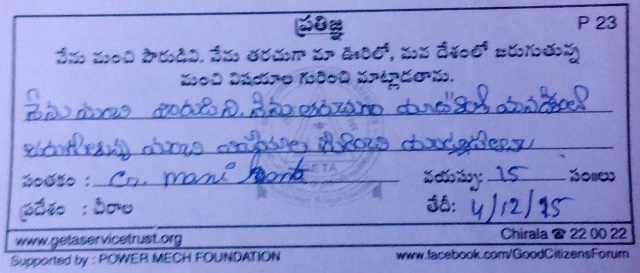 ప్రతిజ్ఞ
P 23
నేను మంచి పౌరుడిని. నేను తరచుగా మా ఊరిలో, మన దేశంలో జరుగుతున్న
మంచి విషయాల గురించి మాట్లాడతాను.
నేను మంచి పౌరుడిని. నేను తరచుగా మా ఊరిలో మన దేశంలో
జరుగుతున్న మంచి విషయాల గురించి
సంతకం : Ch. Mani వయస్సు: 15 సం॥లు
ప్రదేశం : చీరాల తేదీ: 4/12/15
www.getaservicetrust.org Chirala ☎ 22 00 22
Supported by : POWER MECH FOUNDATION www.facebook.com/GoodCitizensForum